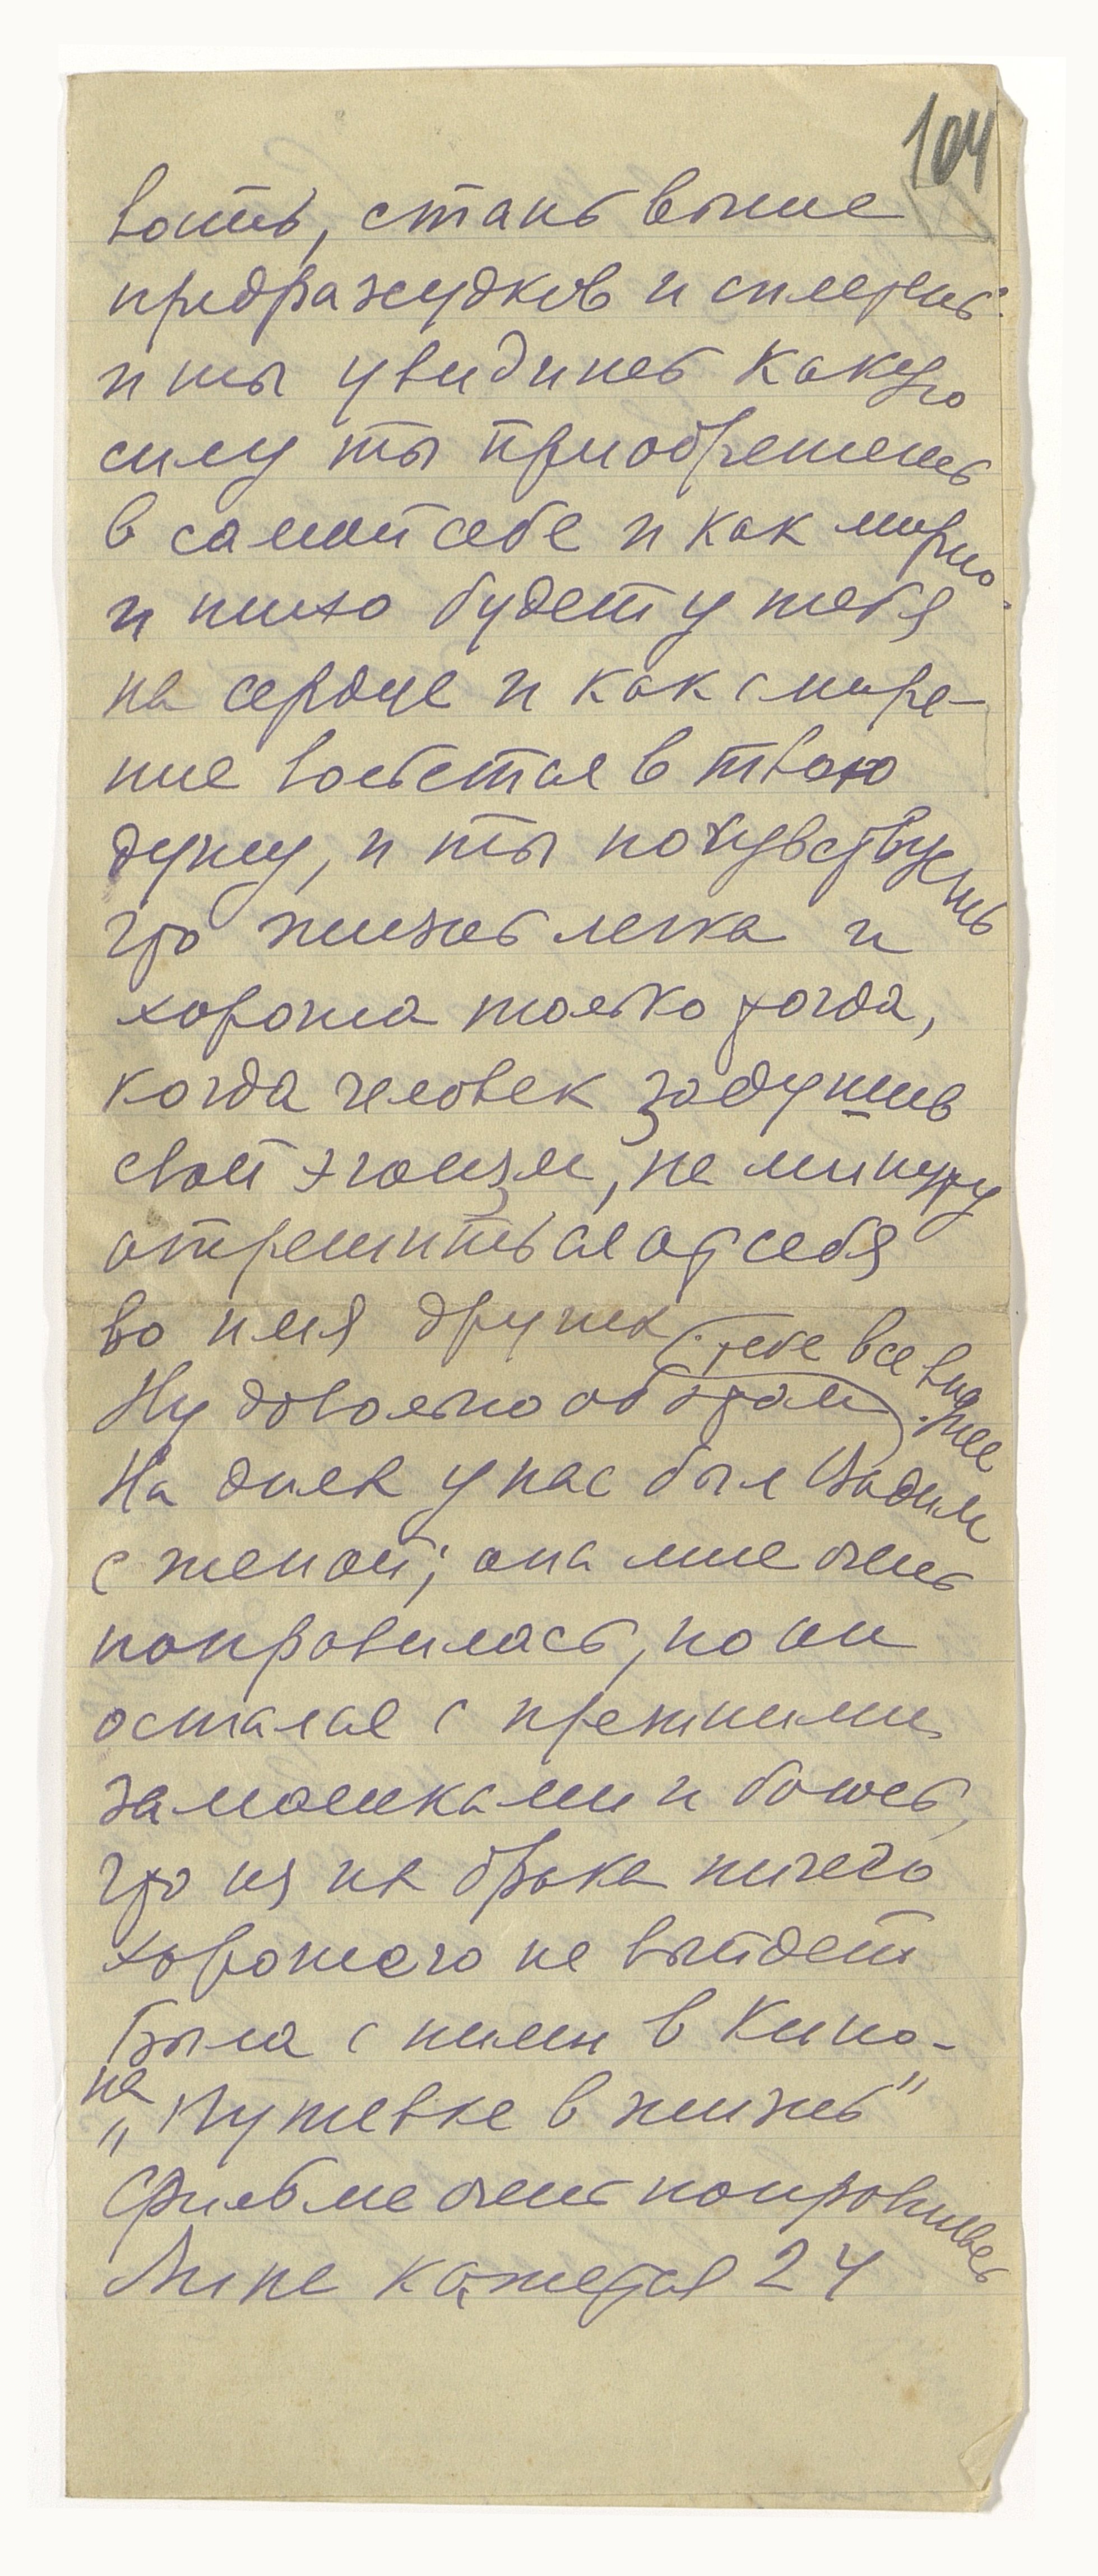 104
вать, стань выше
предрассудков и сплетень
и ты увидишь какую
силу ты приобретешь
в самой себе и как мирно
и тихо будет у тебя
на сердце и как смире-
ние вольется в твою
душу, и ты почувствуешь
что жизнь легка и
хороша только тогда,
когда человек задушив
свой эгоизм, на минуту
отрешиться от себя
во имя других
тебе все
Ну довольно об этом.
На днях у нас был Вадим
с женой; она мне очень
понравилась, но он
остался с прежними
замашками и боюсь,
что из их брака ничего
хорошего не выйдет
Была с ними в Кино-
на
„Путевке в жизнь"
Фильма очень понравилась
Мне кажется 24